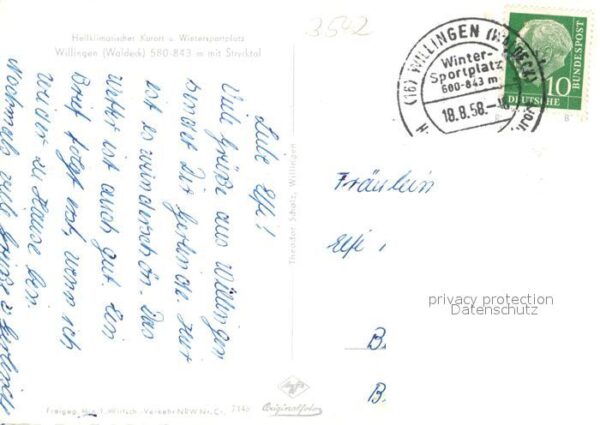 Heilklimatischer Kurort u. Wintersportplatz
Willingen (Waldeck) 580-843 m mit Stryktal
3502
(16) WILLINGEN (WALDECK)
Winter-
Sportplatz
600-843 m
18.8.58.-
DEUTSCHE
BUNDESPOST
10
Liebe Elfi!
Viele Grüße aus Willingen
sendet Dir Gerlinde. Hier
ist es wunderschön. Das
Wetter ist auch gut. Ein
Brief folgt noch, wenn ich
wieder zu Hause bin.
Nochmals viele Grüße v. Gerlinde
Theodor Scholz, Willingen
Fräulein
Elfi
B.
B.
privacy protection
Datenschutz
Freigeg. Min. f. Wirtsch. u. Verkehr NRW Nr. C.. 7146
Agfa
Originalfoto